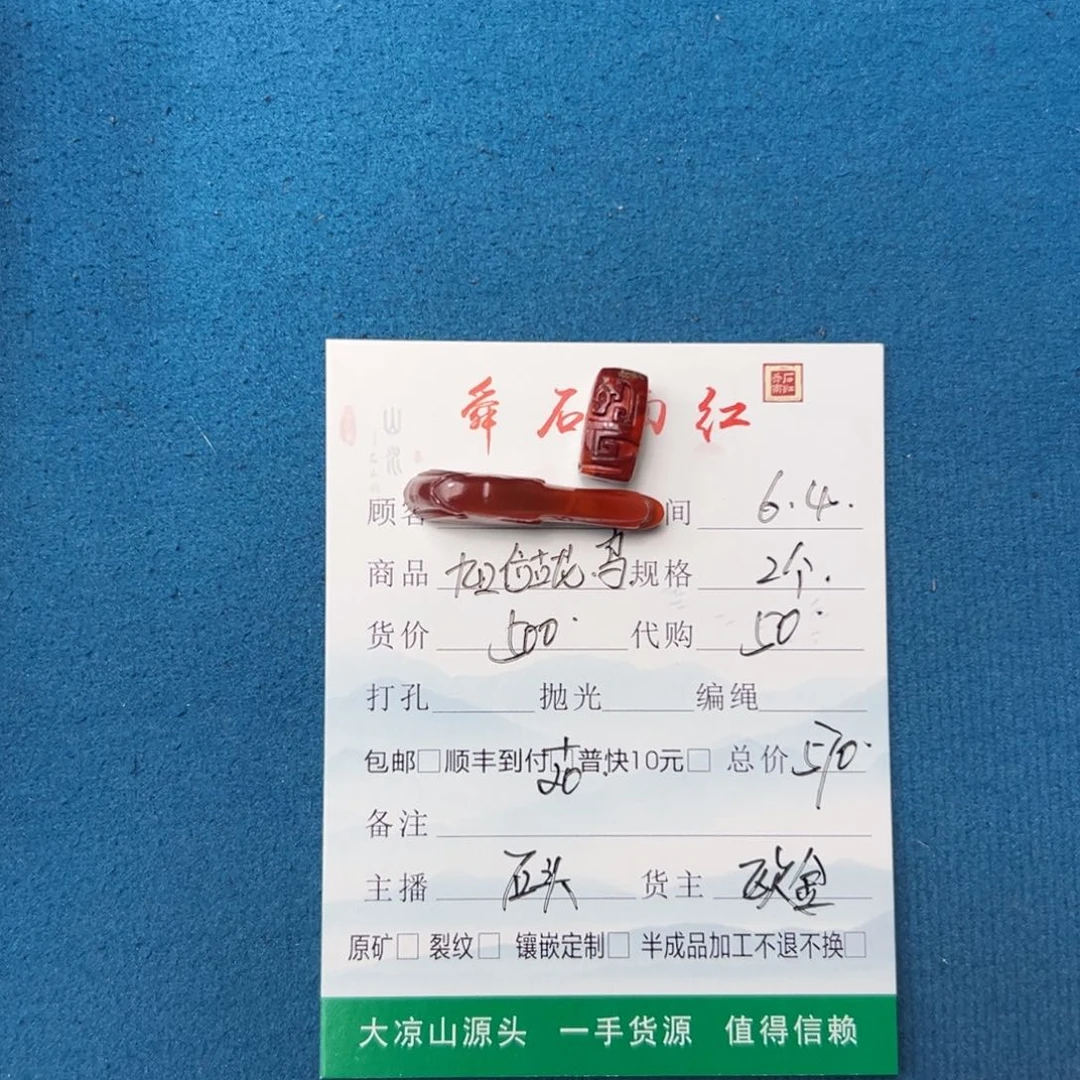 舜石 红
顾客 间 6.4.
商品 规格 2个.
货价 500. 代购 50.
打孔 抛光 编绳
包邮□顺丰到付□普快10元□ 总价 570.
+20.
备注
主播 石头 货主 欧金
原矿□ 裂纹□ 镶嵌定制□ 半成品加工不退不换□
大凉山源头 一手货源 值得信赖